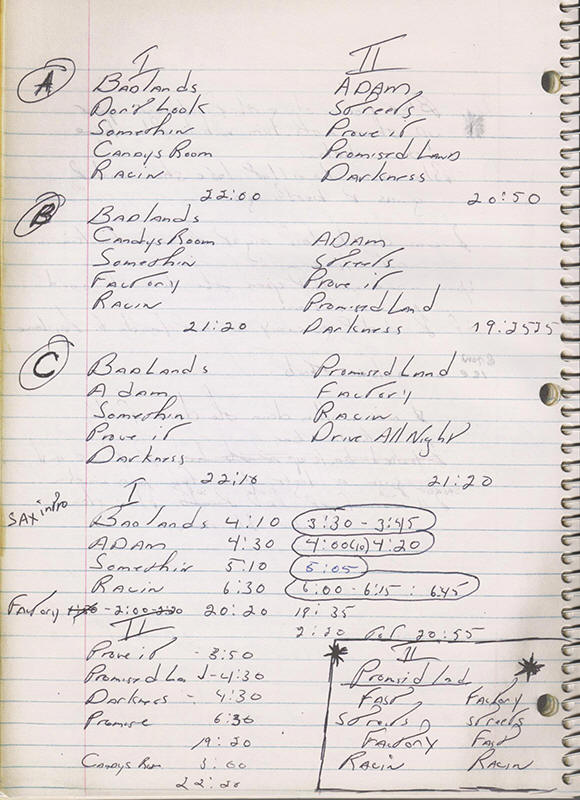 I II
A
Badlands ADAM
Don't Look Streets
Somethin Prove it
Candys Room Promised Land
Racin Darkness
22:00 20:50
B
Badlands
Candys Room ADAM
Somethin Streets
Factory Prove it
Racin Promised Land
21:20 Darkness 19:25
C
Badlands Promised Land
Adam Factory
Somethin Racin
Prove it Drive All Night
Darkness
22:10 21:20
I
SAX intro
Badlands 4:10 3:30 - 3:45
ADAM 4:30 4:00 (10) 4:20
Somethin 5:10 5:05
Racin 6:30 6:00 - 6:15 : 6:45
Factory - 2:00-2:20 20:20 19:35
2:20 20:55
II
Prove it - 3:50
Promised Land - 4:30
Darkness - 4:30
Promise 6:30
19:20
Candys Rm 3:00
22:20
II
Promisd Lad
Fast Factory
Streets Streets
Factory Fast
Racin Racin